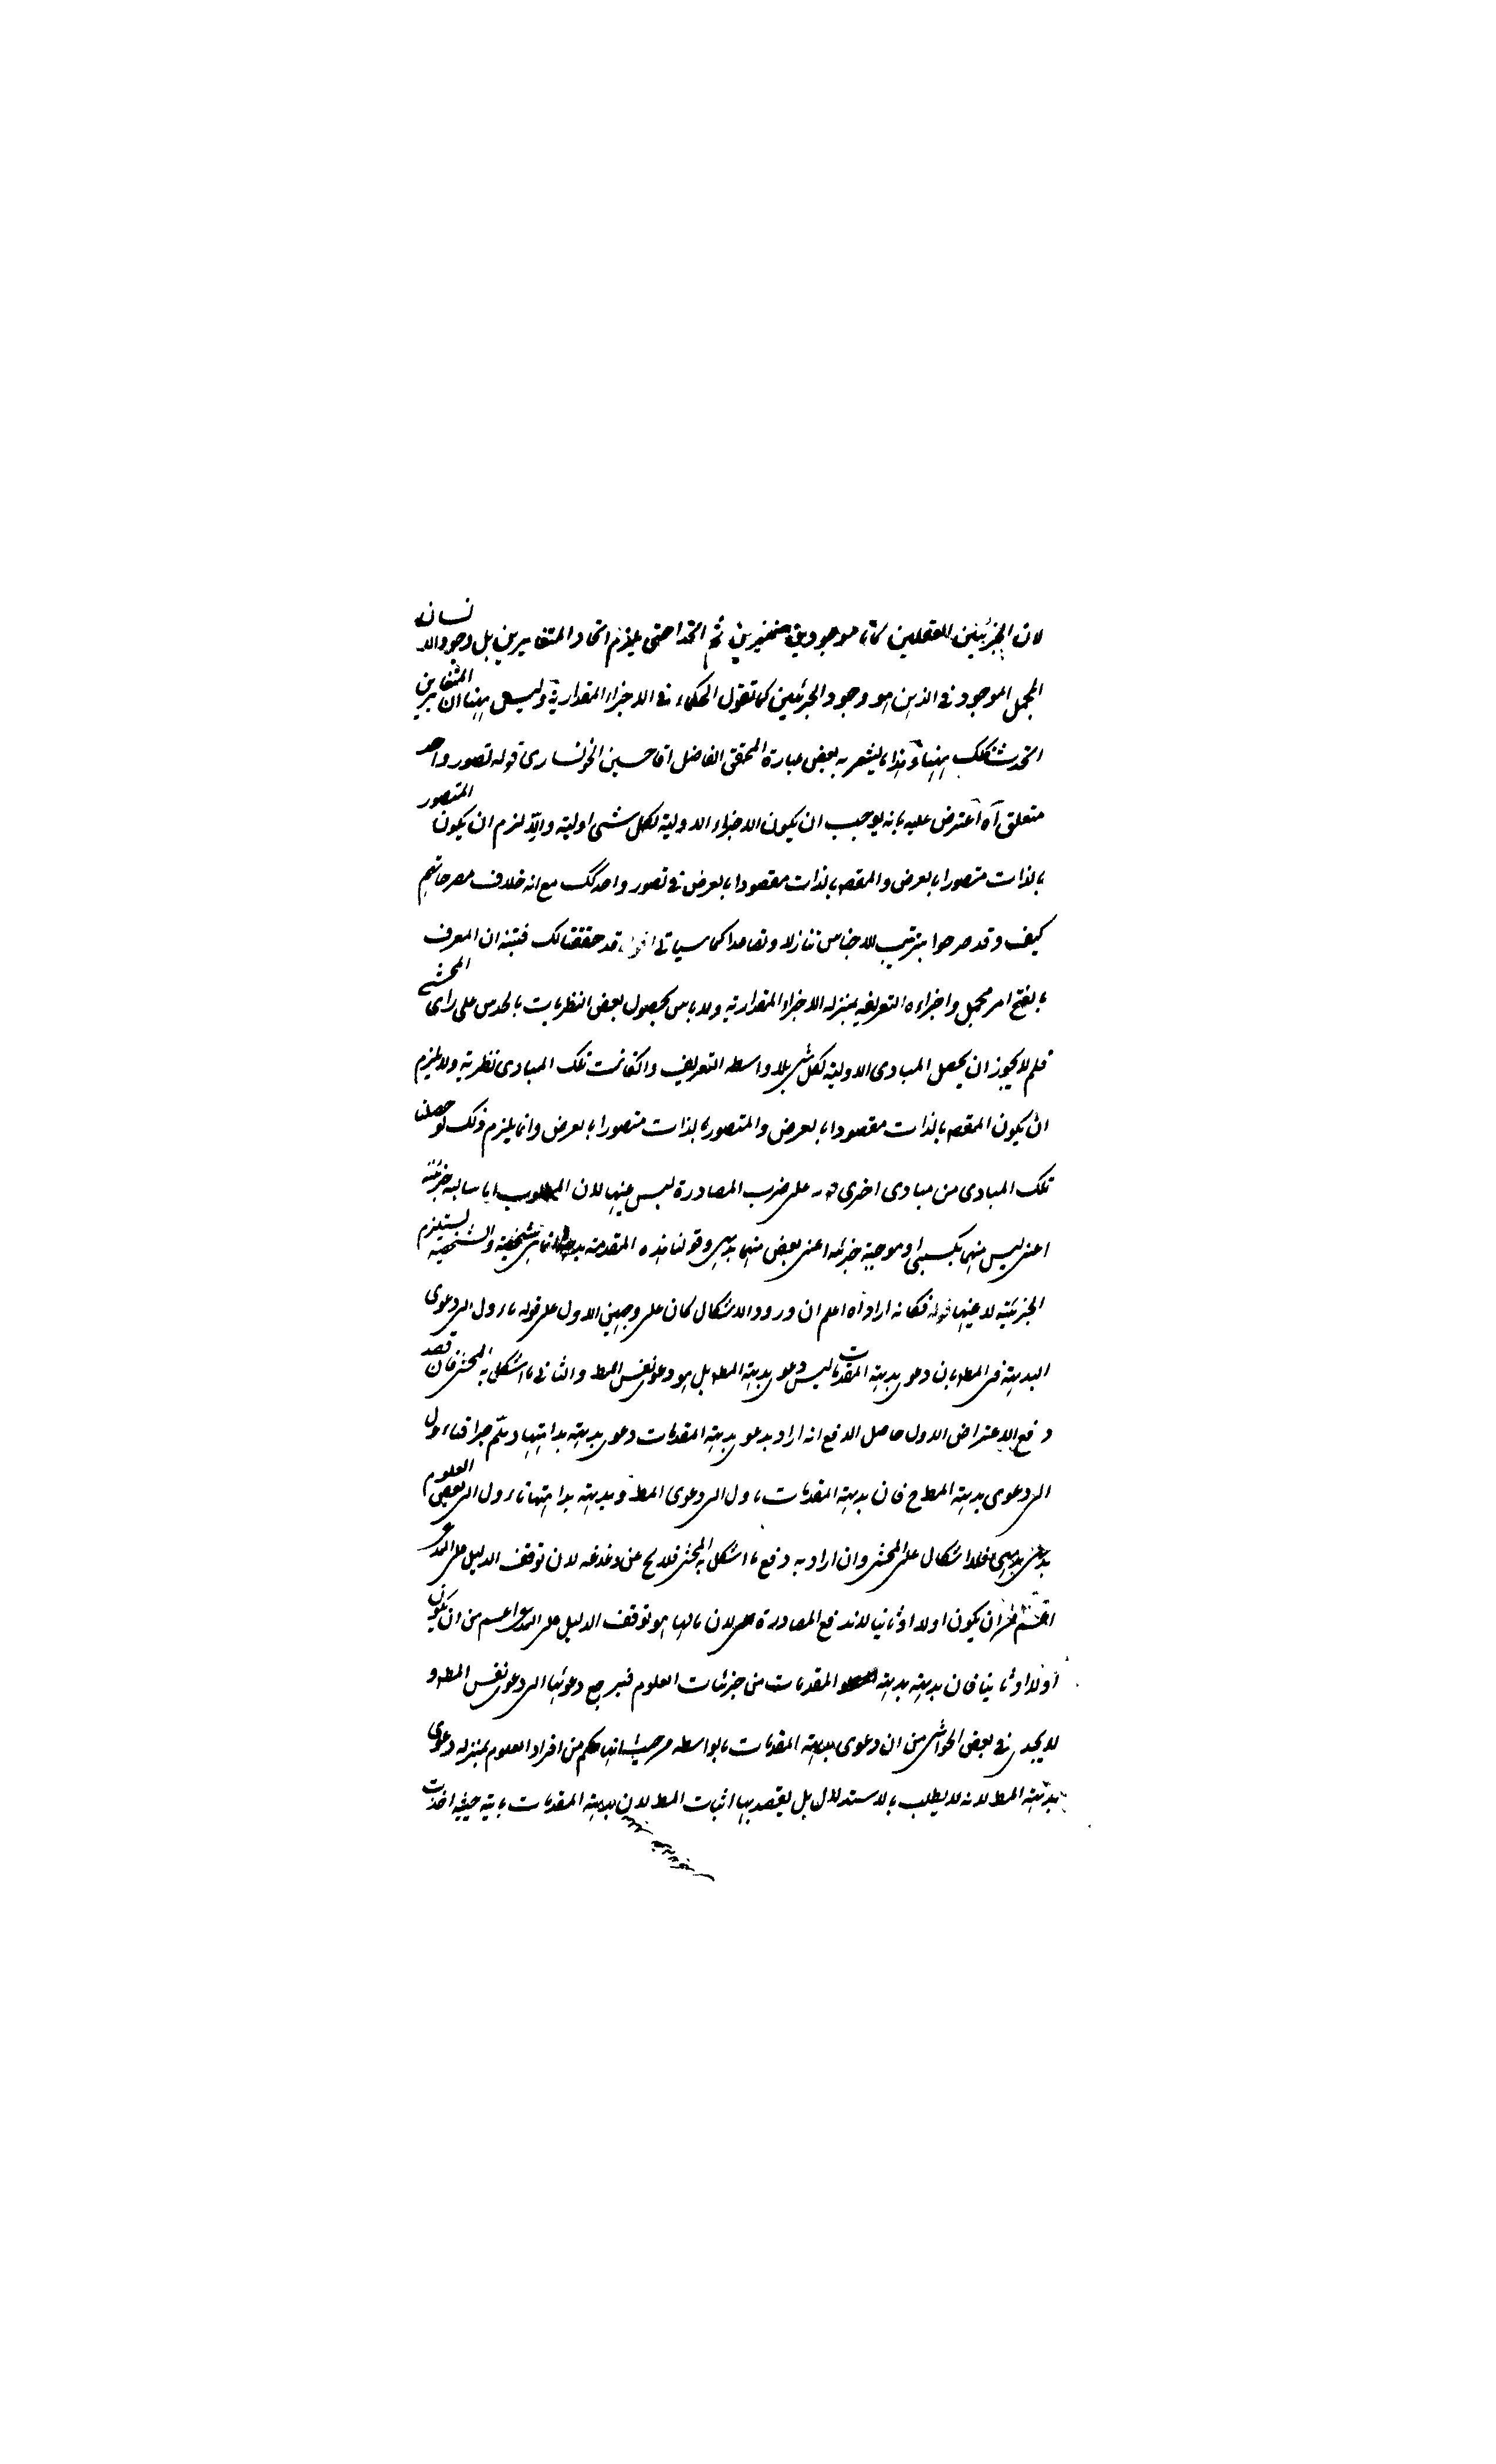 لان الجزئين العقليين كانا موجودين متغيرين ثم اتحدا حتى يلزم اتحاد المتغايرين بل وجود الانسان
المجمل الموجود في الذهن هو وجود الجزئين كما تقول الحكماء في الاجزاء المقدارية وليس ههنا ان المتغايرين
اتحدا هناك ههنا وهذا ما يشعر به بعض عبارة المحقق الفاضل اقا حسين الخونسارى قوله تصور واحد
متعلق آه اعترض عليه بانه يوجب ان يكون الاجزاء الاولية لكل شى اولية وايضا لزم ان يكون المتصور
بالذات متصورا بالعرض والمقص بالذات مقصودا بالعرض في تصور واحد كك مع انه خلاف مصرحاتهم
كيف وقد صرحوا بترتيب الاجناس تنازلا وتصاعدا كما سياتي قد حققنا لك فتنبه ان المعرف
بالفتح امر مجمل واجزاءه التعريفية بمنزلة الاجزاء المقدارية ولا باس بحصول بعض النظريات بالحدس على راى المحشى
فلم لا يجوز ان يحصل المبادى الاولية لكل شى بلا واسطه التعريف وان كانت تلك المبادى نظرية ولا يلزم
ان يكون المقص بالذات مقصودا بالعرض والمتصور بالذات متصورا بالعرض وانما يلزم ذلك لو حصلنا
تلك المبادى من مبادى اخرى قوله على ضرب المصادرة ليس عينها لان المطلوب اما سالبة جزئية
اعنى ليس منها بكسبى او موجبة جزئية اعنى بعض منها بديهى وقولنا هذه المقدمة بديهية شخصية والشخصية يستلزم
الجزئية لا عينها قوله فكانه اراد آه اعلم ان ورود الاشكال كان على وجهين الاول على قوله يا ول الى دعوى
البديهة فى المط بان دعوى بديهة المقدمات ليس دعوى بديهة المط بل هو دعوى نفس المط والثانى ما اشكل به المحشى فان قصد
دفع الاعتراض الاول حاصل الدفع انه اراد بدعوى بديهة المقدمات دعوى بديهة بداهتها وتم جرا فتاول
الى دعوى بديهة المط ح فان بديهة المقدمات ياول الى دعوى المط وبديهة بداهتها ياول الى بعض العلوم
بديهى بديهى فلا اشكال على المحشى وان اراد به دفع ما اشكل به المحشى فلا يخ عن دغدغه لان توقف الدليل على المدعى
اعم من ان يكون اولا او ثانيا لا يدفع المصادرة لان مالها هو توقف الدليل على المدعى اعم من ان يكون
اولا او ثانيا فان بديهة بديهة المقدمات من جزئيات العلوم فيرجع دعوئها الى دعوى نفس المط و
لا يجدى في بعض الحواشى من ان دعوى بداهة المقدمات بالواسطه من حيث انها حكم من افراد العلوم بمنزلة دعوى
بديهة المط لانه لا يطلب بالاستدلال بل يقصد بها اثبات المط لان بديهة المقدمات باية حيثية اخذت